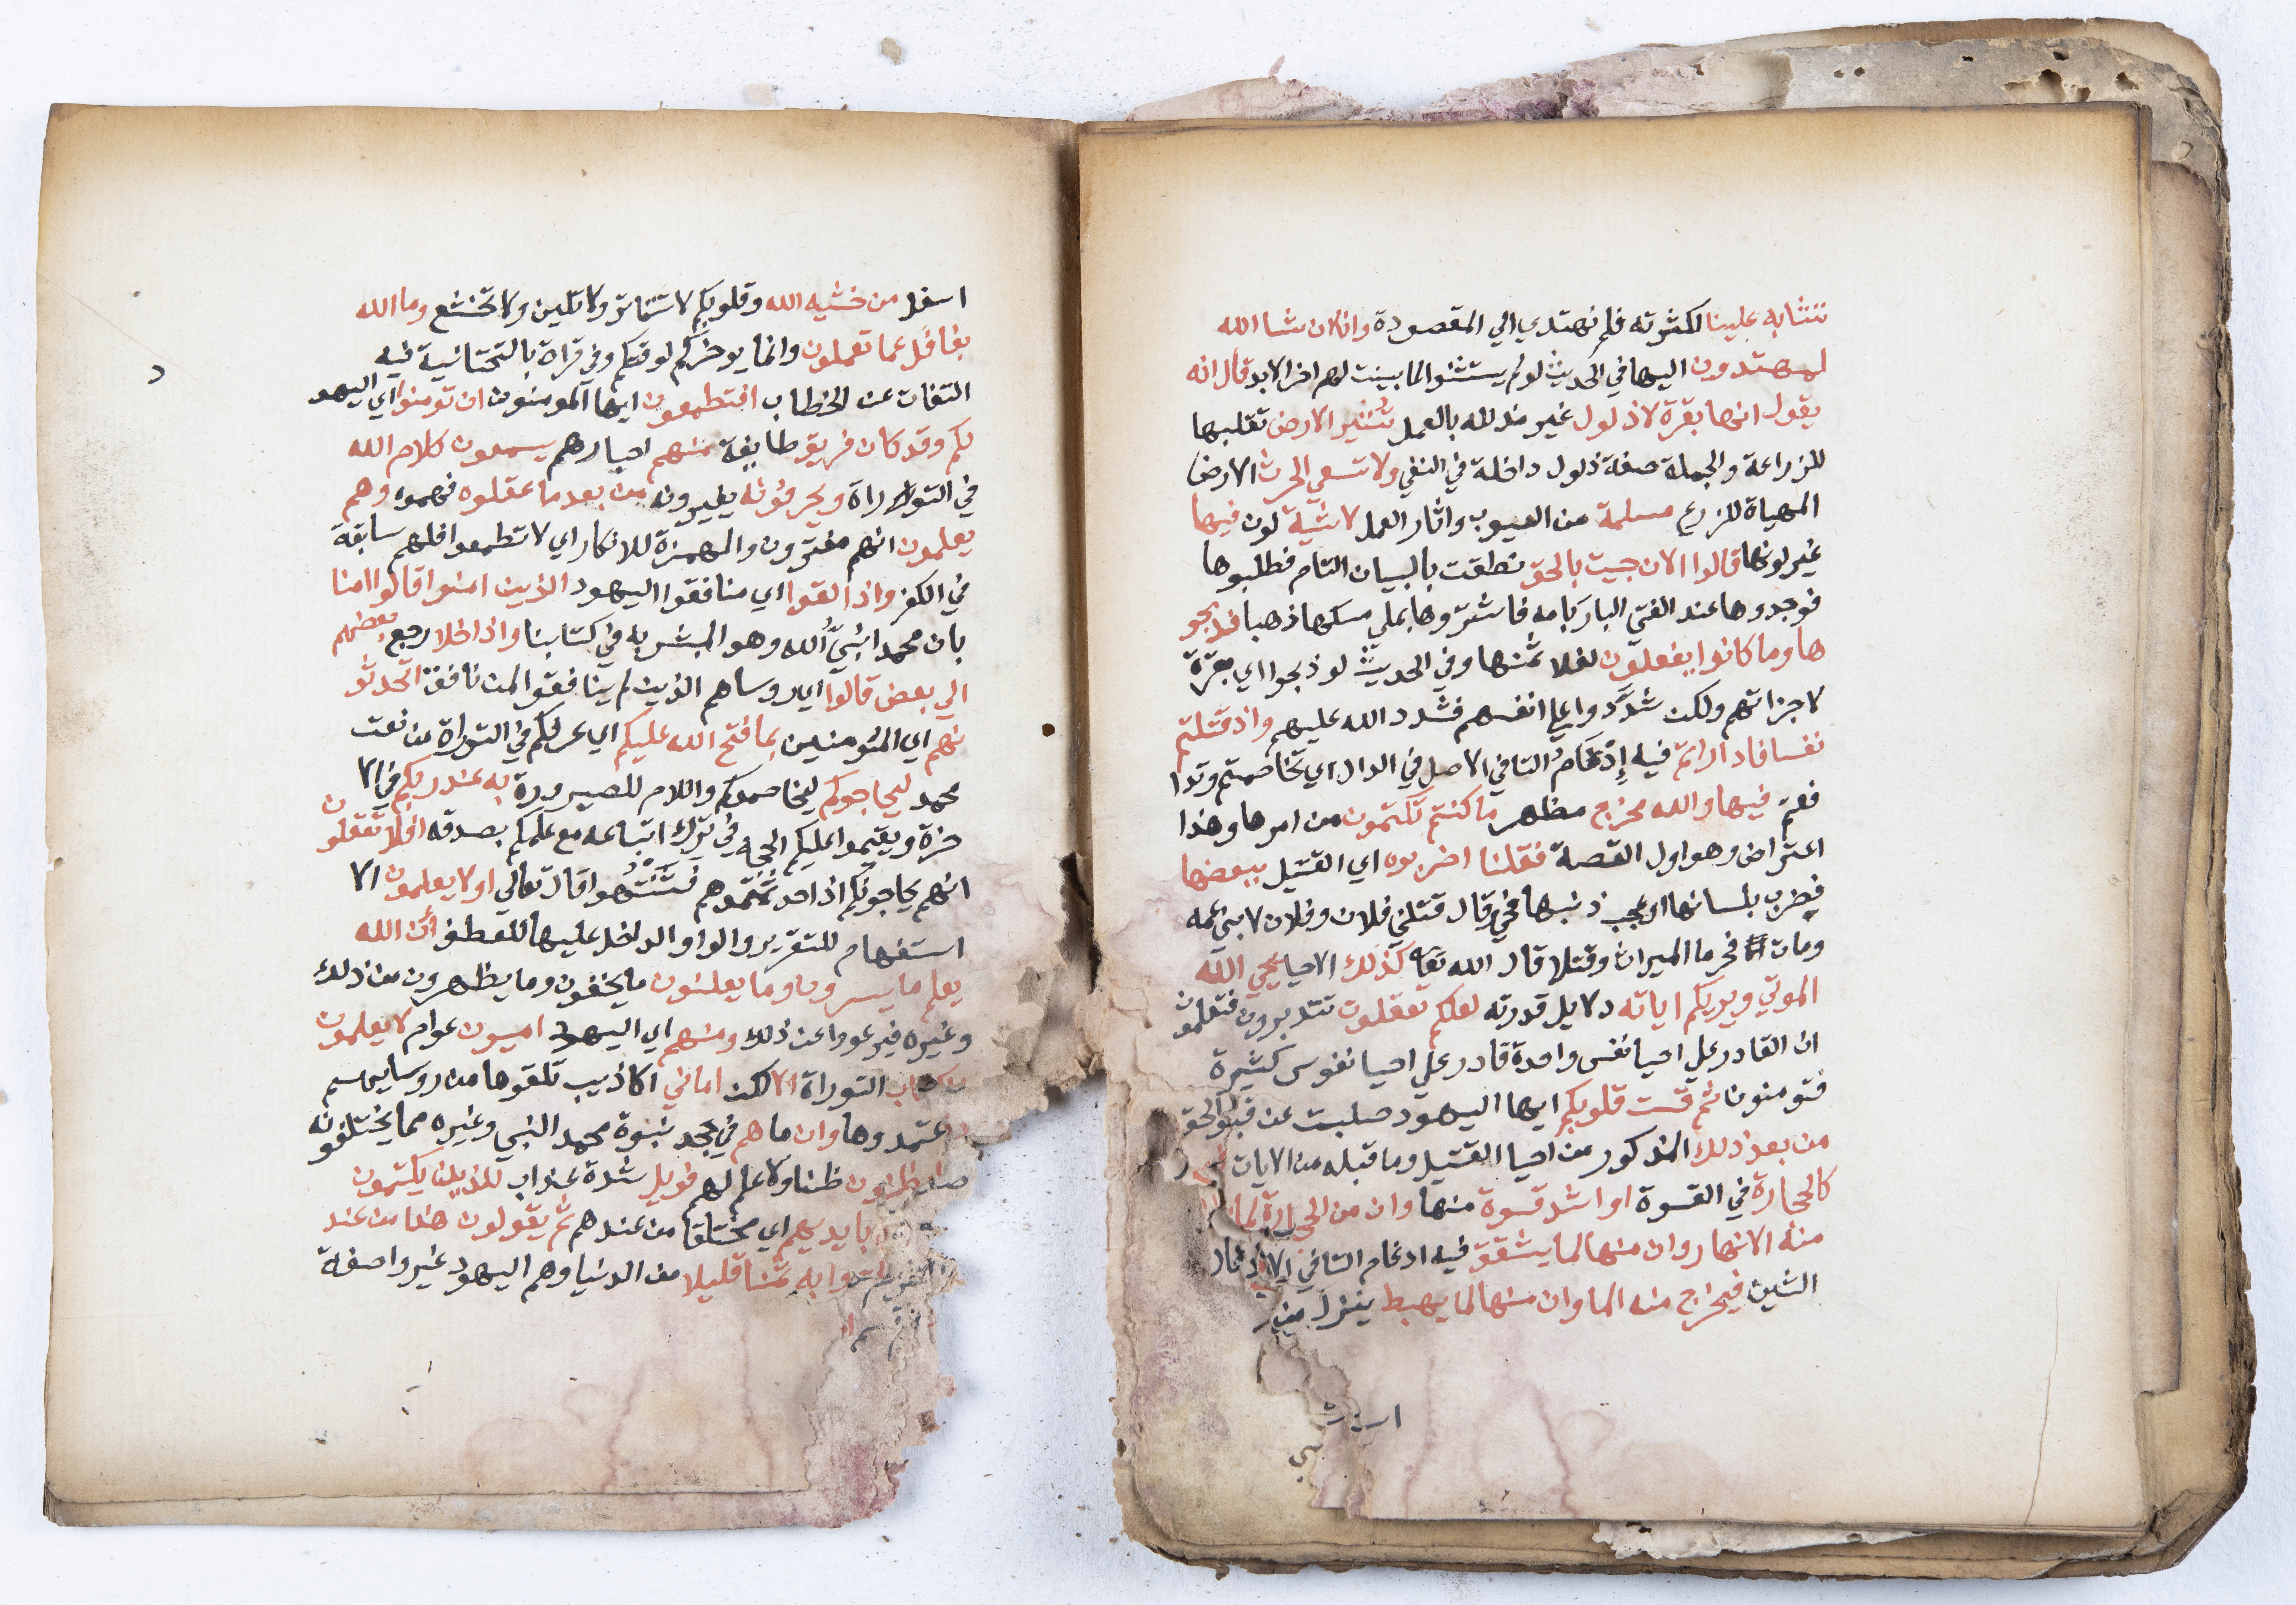 تتشابه علينا لكثرته فلم نهتدي الي المقصودة وانا ان شا الله
لمهتدون اليها في الحديث لو لم يستثنوا لما بينت لهم اخر الابد قال انه
يقول انها بقرة لا ذلول غير مذلله بالعمل تثير الارض تقلبها
للزراعة والجملة صفة ذلول داخلة في النفي ولا تسقي الحرث الارض
المهياة للزرع مسلمة من العيوب واثار العمل لا شية لون فيها
غير لونها قالوا الان جيت بالحق نطقت بالبيان التام فطلبوها
فوجدوها عند الفتي البار بامه فاشتروها بملي مسكها ذهبا فذبحو
ها وما كانوا يفعلون لغلا ثمنها وفي الحديث لو ذبحوا اي بقرة
لاجزاتهم ولكن شددوا علي انفسهم فشدد الله عليهم واذ قتلتم
نفسا فادارأتم فيه إدغام التا في الاصل في الدال اي تخاصمتم وتدا
فعتم فيها والله مخرج مظهر ما كنتم تكتمون من امرها وهذا
اعتراض وهو اول القصة فقلنا اضربوه اي القتيل ببعضها
فضرب بلسانها او عجب ذنبها فحي وقال قتلني فلان وفلان لابني عمه
ومات فحرما الميراث وقتلا قال الله تعا كذلك الاحيا يحي الله
الموتي ويريكم اياته دلايل قدرته لعلكم تعقلون تتدبرون فتعلمون
ان القادر علي احيا نفس واحدة قادر علي احيا نفوس كثيرة
فتومنون ثم قست قلوبكم ايها اليهود صلبت عن قبول الحق
من بعد ذلك المذكور من احيا القتيل وما قبله من الايات
كالحجارة في القسوة او اشد قسوة منها وان من الحجارة لما
منه الانهار وان منها لما يشقق فيه ادغام التا في الاصل في
الشين فيخرج منه الما وان منها لما يهبط ينزل من
اسفل من خشيه الله وقلوبكم لا تتاثر ولا تلين ولا تخشع وما الله
بغافل عما تعملون وانما يوخركم لوقتكم وفي قراة بالتحتانية فيه
التفات عن الخطاب افتطمعون ايها المومنون ان تومنوا اي اليهو
لكم وقد كان فريق طايفة منهم احبارهم يسمعون كلام الله
في التوراة ويحرفونه يغيرونه من بعد ما عقلوه فهموه وهم
يعلمون انهم مفترون والهمزة للانكار اي لا تطمعوا فلهم سابقة
في الكفر واذا لقوا اي منافقوا اليهود الذين امنوا قالوا امنا
بان محمد انبيُّ الله وهو المبشر به في كتابنا واذا خلا رجع بعضهم
الي بعض قالوا اي روساهم الذين لم ينافقوا لمن نافق اتحدثو
نهم اي المؤمنين بما فتح الله عليكم اي عرفكم في التوراة من نعت
محمد ليحاجوكم ليخاصموكم واللام للصيرورة به عند ربكم في الا
خرة ويقيموا عليكم الحجة في ترك اتباعه مع علمكم بصدقه افلا تعقلون
انهم يحاجونكم اذا حدثتموهم فتنتهوا قال تعالي اولا يعلمون الا
استفهام للتقرير والواو الداخل عليها للعطف أن الله
يعلم ما يسرون وما يعلنون ما يخفون وما يظهرون من ذلك
وغيره فيرعووا عن ذلك ومنهم اي اليهود اميون عوام لا يعلمون
التوراة الا لكن اماني اكاذيب تلقوها من روسايهم
وان ما هم في جحد نبوة محمد النبي وغيره مما يختلقونه
ظنا ولا علم لهم فويل شدة عذاب للذين يكتمون
بايديهم اي مختلقا من عندهم ثم يقولون هذا من عند
به ثمنا قليلا من الدنيا وهم اليهود غيروا صفة